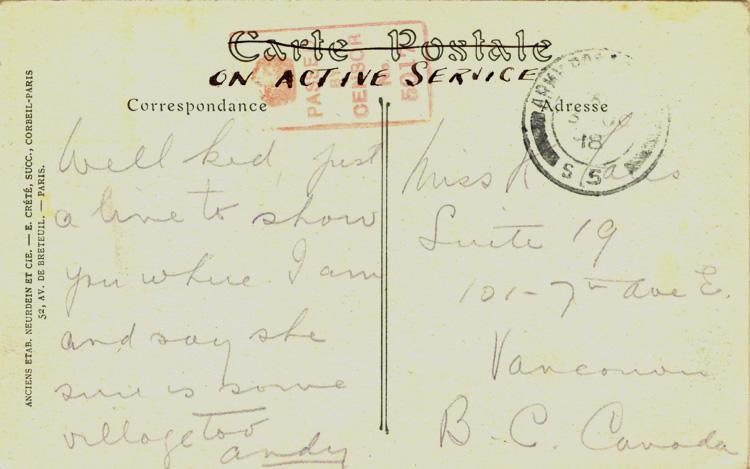 Carte Postale
ON ACTIVE SERVICE
PASSED
CENSOR
No.
5017
Correspondance
Adresse
ARMY POST
18
S S
Well kid just
a line to show
you where I am
and say she
sure is some
village too
Andy
Miss
Suite 19
101-7th Ave E.
Vancouver
B.C. Canada
ANCIENS ETAB. NEURDEIN ET CIE. — E. CRÉTÉ, SUCC., CORBEIL-PARIS
52, AV. DE BRETEUIL. — PARIS.